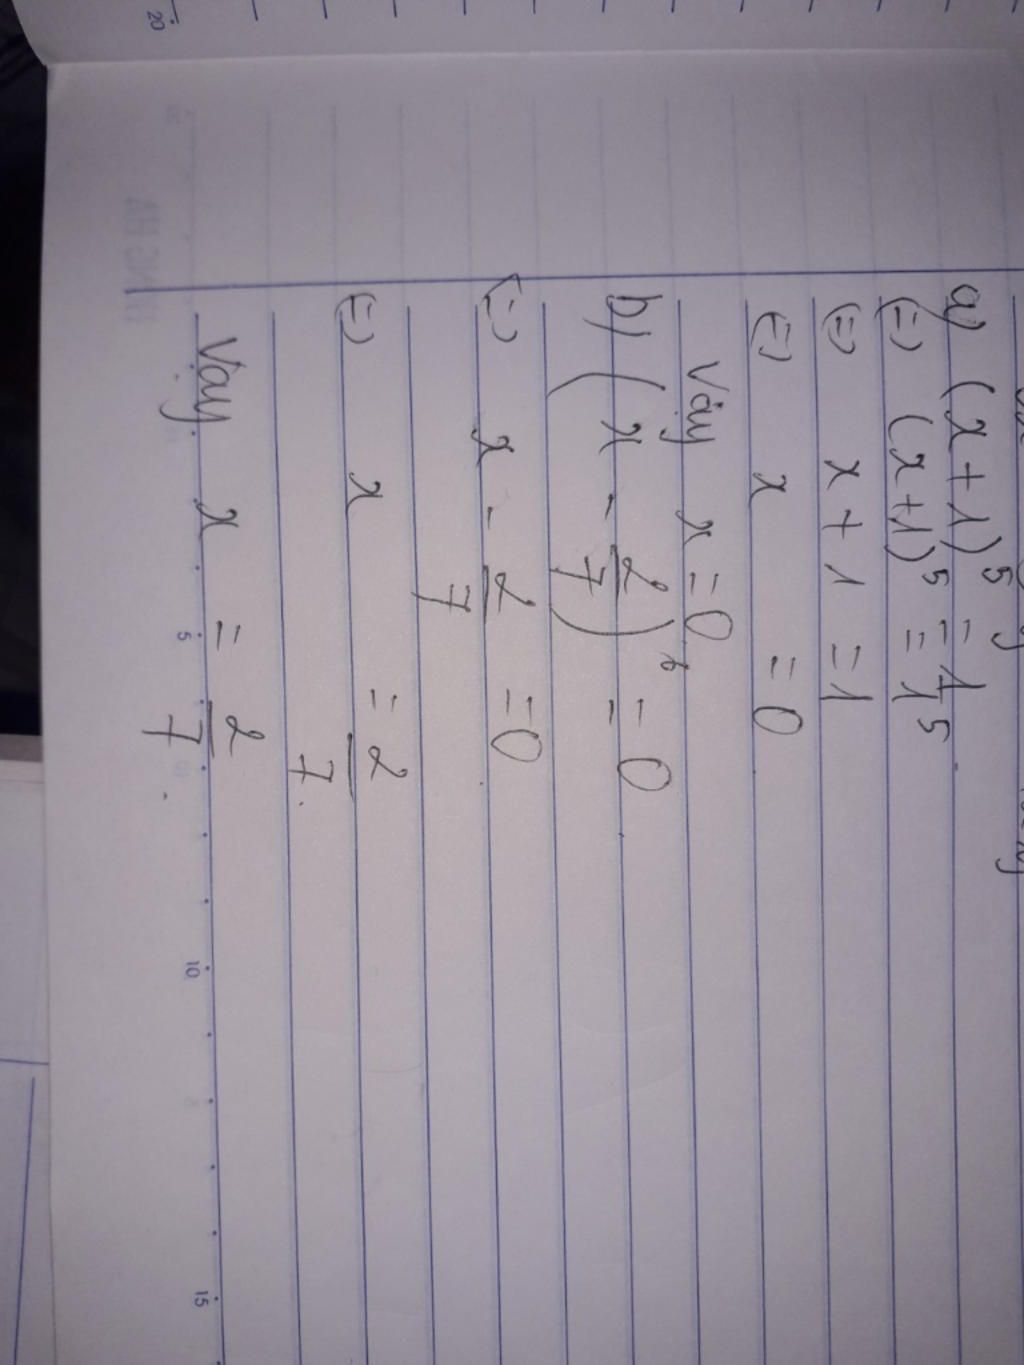 a) (x + 1)⁵ = 1
(=) (x+1)⁵ = 1⁵
(=) x + 1 = 1
(=) x = 0
Vậy x = 0
b) (x - 2/7)⁶ = 0
(=) x - 2/7 = 0
(=) x = 2/7.
Vậy x = 2/7.
20
5
10
15